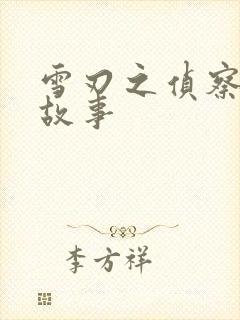 雪刃之偵察
故事
李方祥